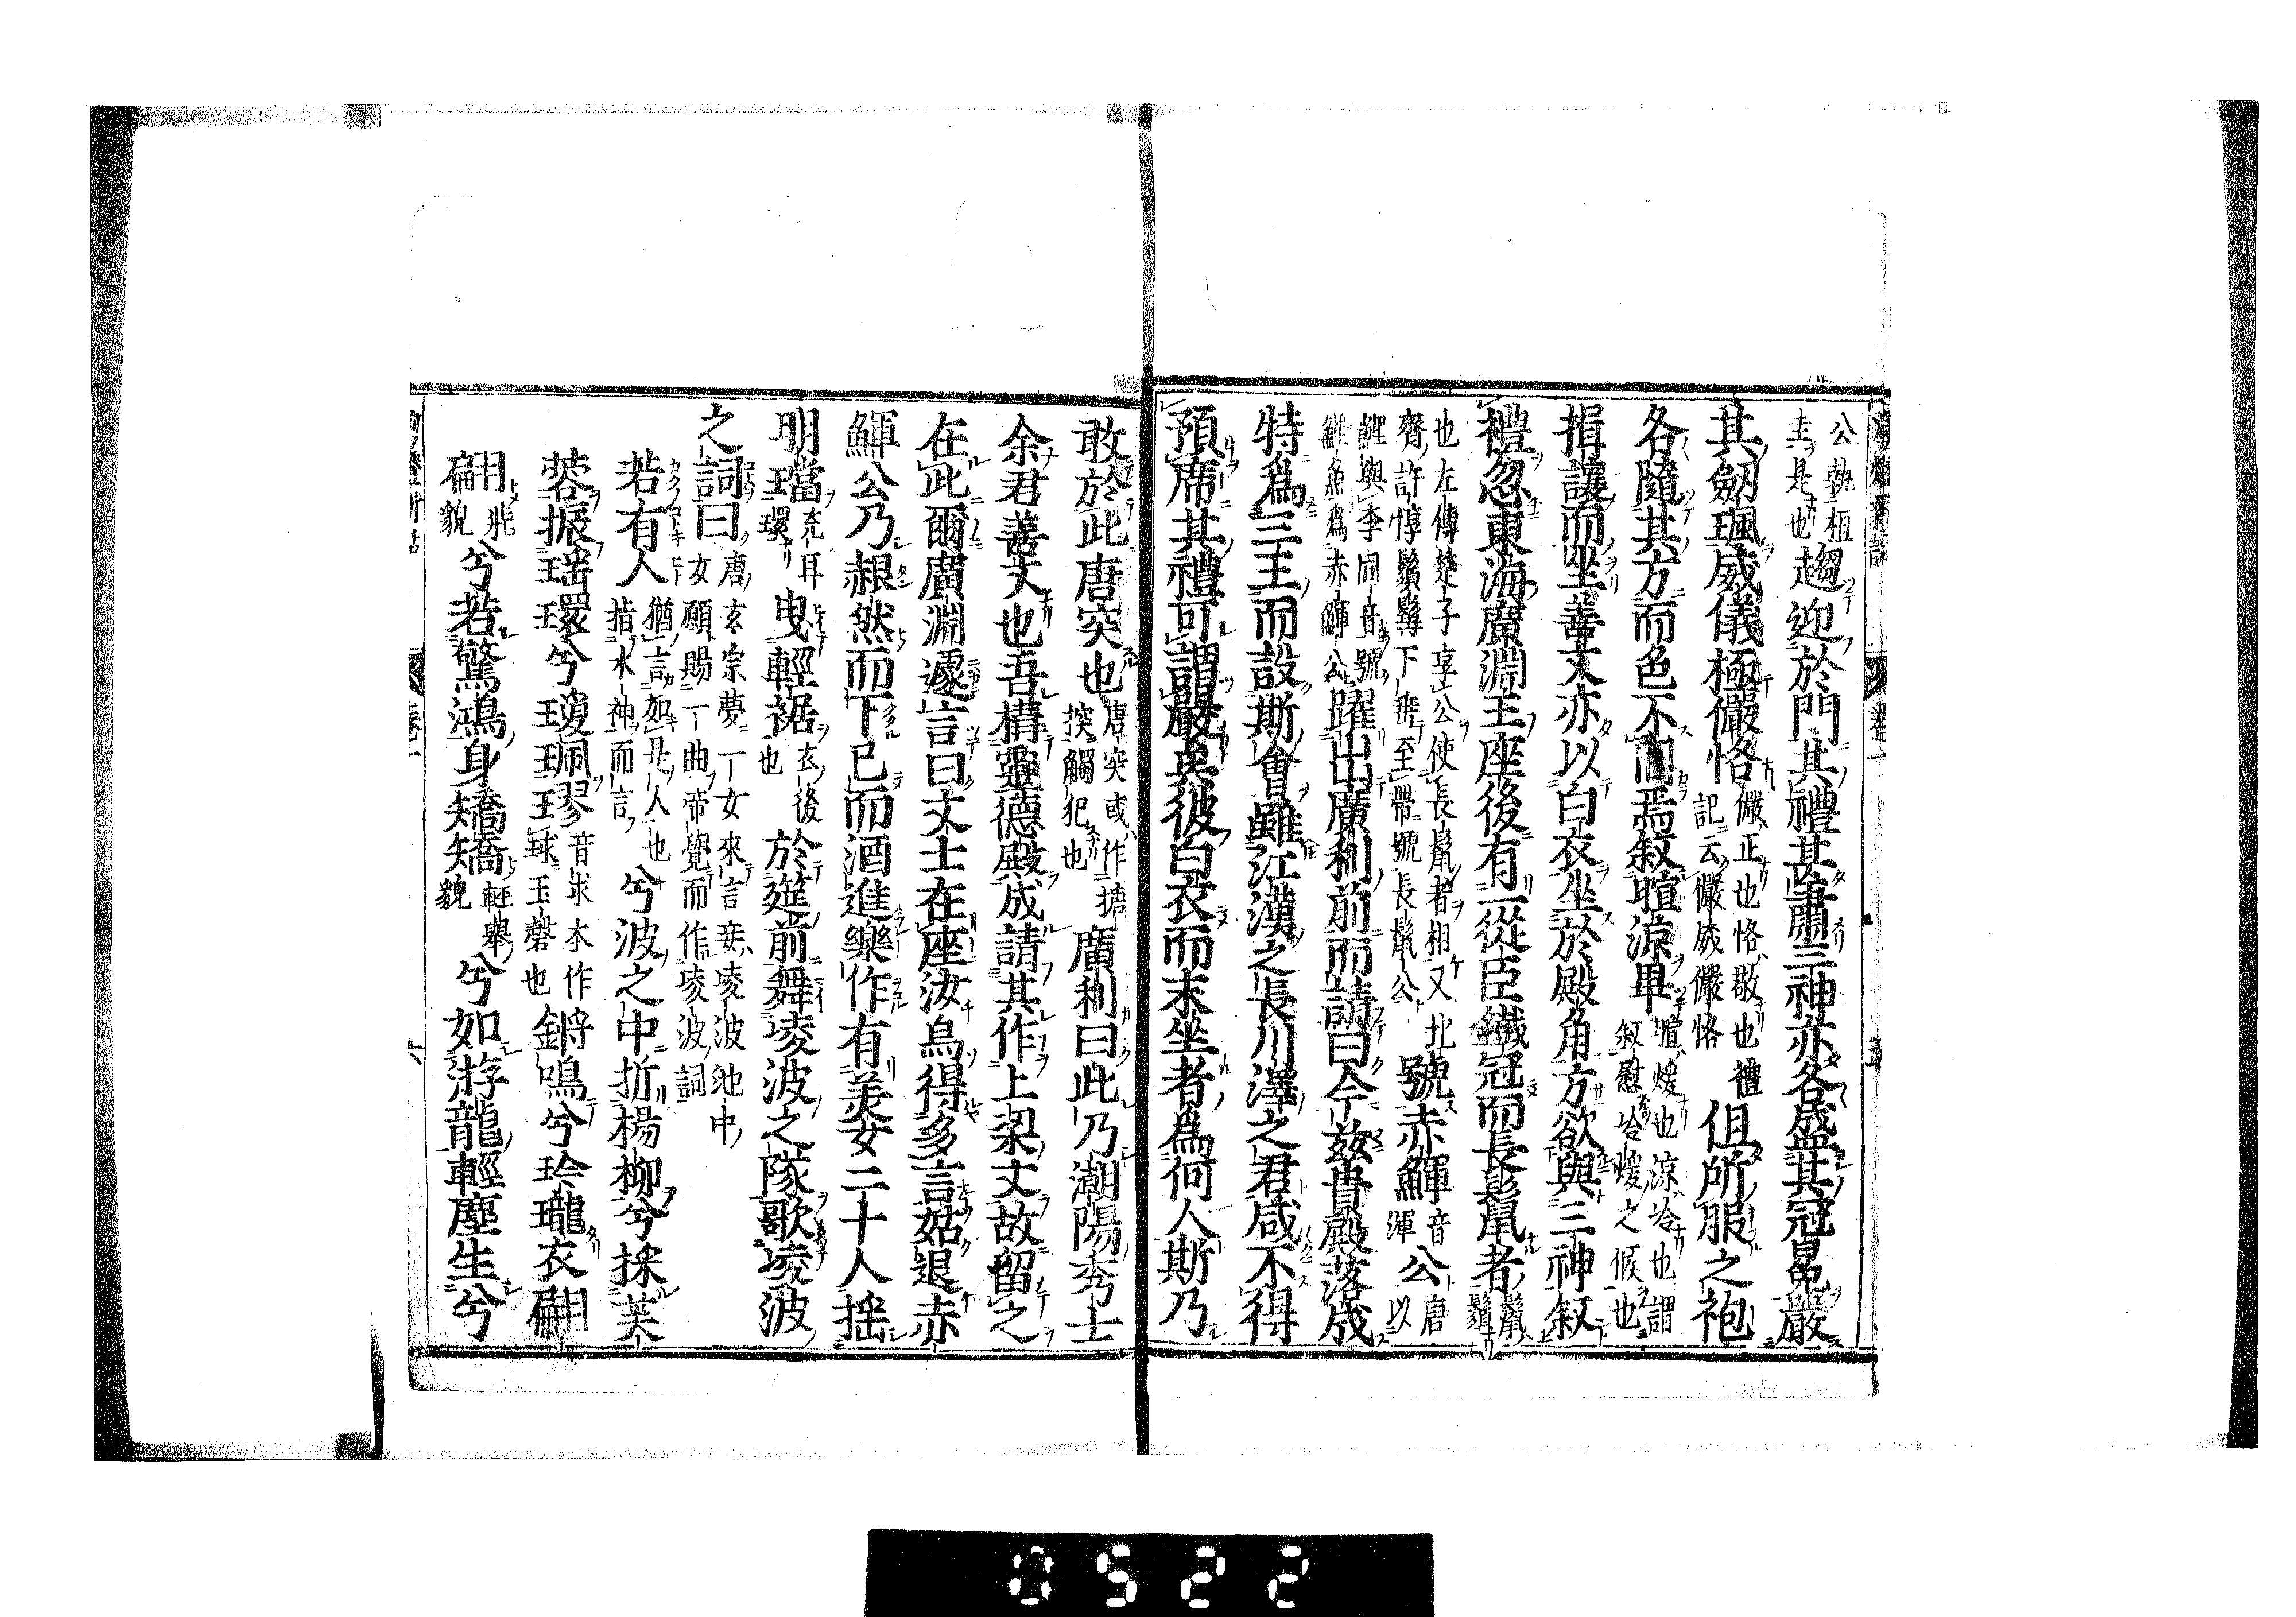 公執桓
圭是也趨迎於門其禮甚肅三神亦各盛其冠冕嚴
其劒珮威儀極儼恪儼正也恪敬也禮記云儼威儼恪但所服之袍
各隨其方而色不同焉敍暄涼畢暄煖也涼冷也謂敍慰冷煖之候也
揖讓而坐善文亦以白衣坐於殿角方欲與三神敍
禮忽東海廣淵王座後有一從臣鐵冠而長鬣者鬣鬚
也左傳楚子享公使長鬣者相又北齊許惇鬚髯下垂至帶號長鬣公號赤鯶音渾公唐以
鯉與李同音號鯉魚為赤鯶公躍出廣利前而請曰今茲貴殿落成
特為三王而設斯會雖江漢之長川澤之君咸不得
預席其禮可謂嚴矣彼白衣而末坐者為何人斯乃
敢於此唐突也唐突或作搪揬觸犯也廣利曰此乃潮陽秀士
余君善文也吾構靈德殿成請其作上梁文故留之
在此爾廣淵遽言曰文士在座汝烏得多言姑退赤
鯶公乃赧然而下已而酒進樂作有美女二十人搖
明璫充耳環曳輕裾衣後也於筵前舞凌波之隊歌凌波
之詞曰唐玄宗夢一女來言妾凌波池中女願賜一曲帝覺而作凌波詞
若有人猶言如是人也指水神而言兮波之中折楊柳兮採芙
蓉振瑤環兮瓊珮璆音求本作球玉磬也鏘鳴兮玲瓏衣翩
翩飛貌兮若驚鴻身矯矯輕舉貌兮如游龍輕塵生兮